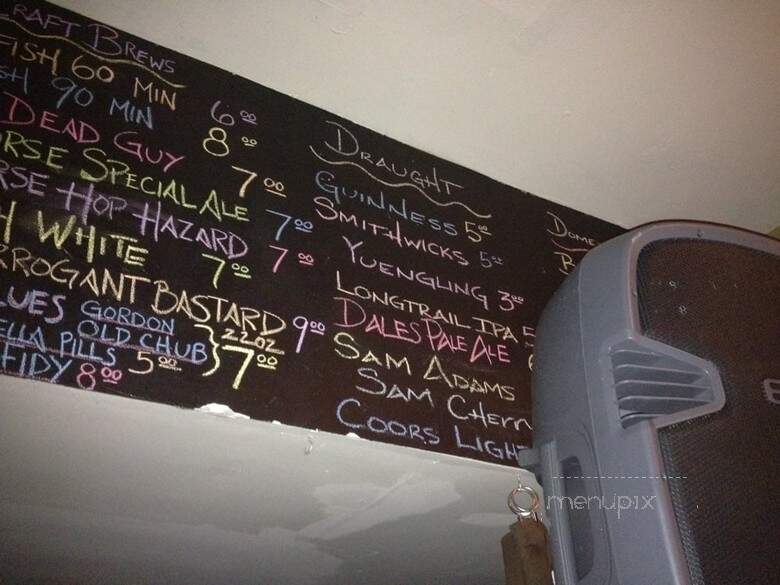 CRAFT BREWS
FISH 60 MIN 6.00
SH 90 MIN 8.00
DEAD GUY 7.00
RSE SPECIAL ALE 7.00
RSE HOP HAZARD 7.00
H WHITE 7.00
RROGANT BASTARD 22oz 9.00
LUES GORDON
OLD CHUB } 7.00
ELLA PILLS 5.00
FIDY 8.00
DRAUGHT
GUINNESS 5.00
SMITHWICKS 5.00
YUENGLING 3.00
LONGTRAIL IPA 5
DALES PALE ALE
SAM ADAMS
SAM CHERR
COORS LIGH
DOME
B
menupix